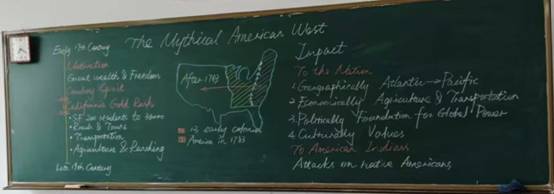 The Mythical American West
Early 19th Century
Motivation
Great wealth & Freedom
Cowboy Spirit
California Gold Rush
SF 200 residents to 36000
Roads & Towns
Transportation
Agriculture & Ranching
Late 19th Century
After 1783
13 early colonies
America in 1783
Impact
To the Nation
1. Geographically Atlantic → Pacific
2. Economically Agriculture & Transportation
3. Politically Foundation for Global Power
4. Culturally Values
To American Indians
Attacks on native Americans